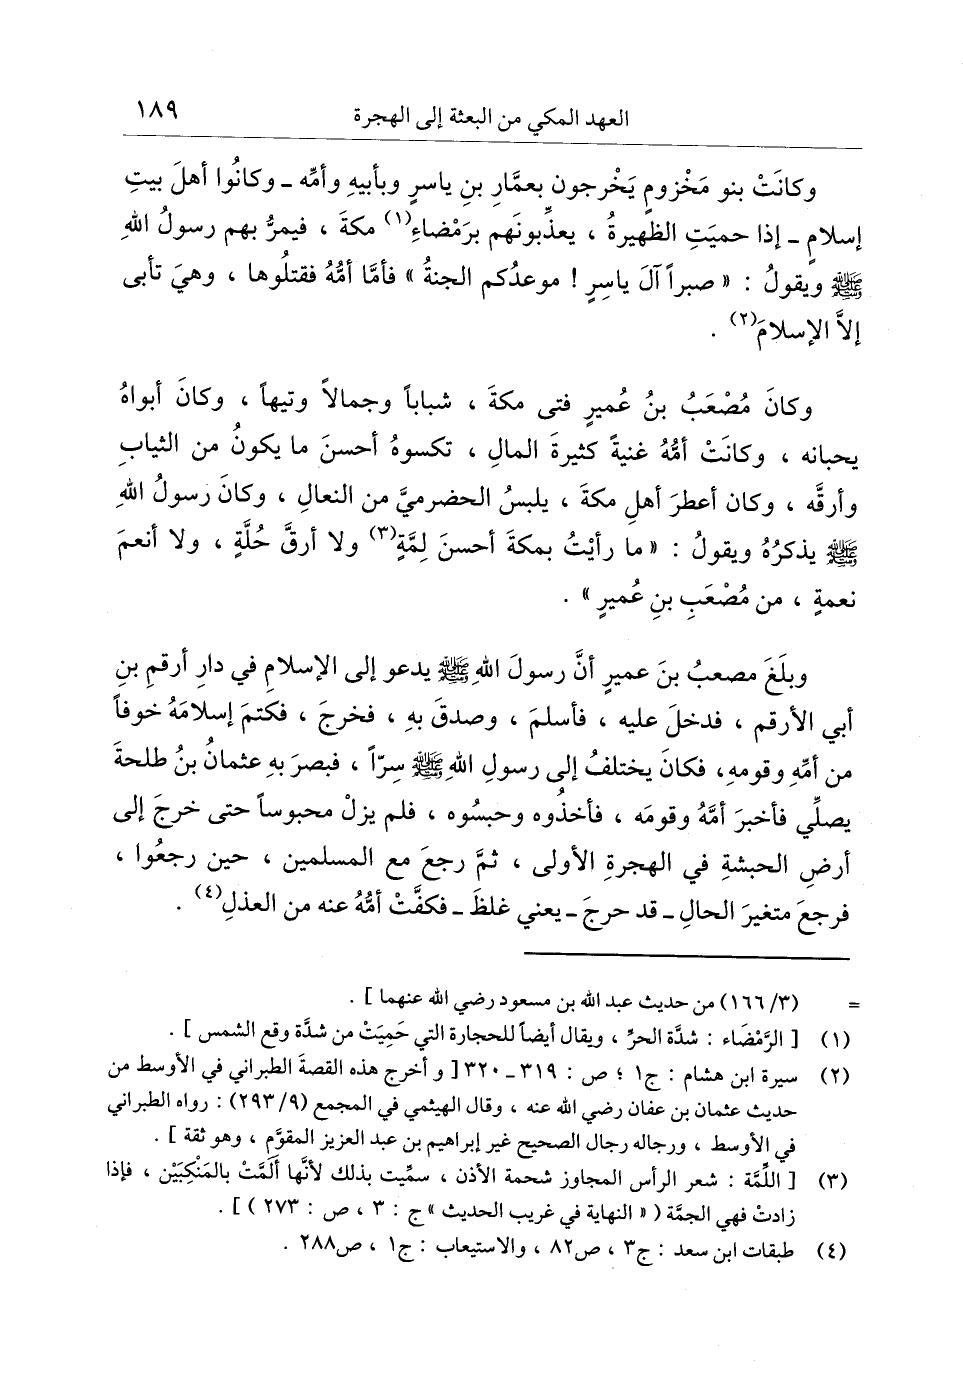 العهد المكي من البعثة إلى الهجرة ١٨٩
وكانَتْ بنو مَخْزومٍ يَخْرجون بعمَّار بنِ ياسرٍ وبأبيهِ وأمِّه ـ وكانُوا أهلَ بيتِ
إسلامٍ ـ إذا حميَتِ الظهيرةُ ، يعذِّبونَهم برَمْضاءِ(١) مكةَ ، فيمرُّ بهم رسولُ اللهِ
ﷺ ويقولُ : « صبراً آلَ ياسِرٍ ! موعدُكم الجنةُ » فأمَّا أمُّهُ فقتلُوها ، وهيَ تأبى
إلاَّ الإسلامَ(٢) .
وكانَ مُصْعَبُ بنُ عُميرٍ فتى مكةَ ، شباباً وجمالاً وتيهاً ، وكانَ أبواهُ
يحبانه ، وكانَتْ أمُّهُ غنيةً كثيرةَ المالِ ، تكسوهُ أحسنَ ما يكونُ من الثيابِ
وأرقَّه ، وكان أعطرَ أهلِ مكةَ ، يلبسُ الحضرميَّ من النعالِ ، وكانَ رسولُ اللهِ
ﷺ يذكرُهُ ويقولُ : « ما رأيْتُ بمكةَ أحسنَ لِمَّةٍ(٣) ولا أرقَّ حُلَّةٍ ، ولا أنعمَ
نعمةٍ ، من مُصْعَبِ بنِ عُميرٍ » .
وبلَغَ مصعبُ بنَ عميرٍ أنَّ رسولَ اللهِ ﷺ يدعو إلى الإسلامِ في دارِ أرقمِ بنِ
أبي الأرقم ، فدخلَ عليه ، فأسلمَ ، وصدقَ بهِ ، فخرجَ ، فكتمَ إسلامَهُ خوفاً
من أمِّهِ وقومهِ، فكانَ يختلفُ إلى رسولِ اللهِ ﷺ سِرّاً ، فبصرَ بهِ عثمانُ بنُ طلحةَ
يصلِّي فأخبرَ أمَّهُ وقومَه ، فأخذُوه وحبسُوه ، فلم يزلْ محبوساً حتى خرجَ إلى
أرضِ الحبشةِ في الهجرةِ الأولى ، ثمَّ رجعَ مع المسلمين ، حين رجعُوا ،
فرجعَ متغيرَ الحالِ ـ قد حرجَ ـ يعني غلظَ ـ فكفَّتْ أمُّهُ عنه من العذلِ(٤) .
= (١٦٦/٣) من حديث عبد الله بن مسعود رضي الله عنهما ] .
(١) [ الرَّمْضَاء : شدَّة الحرِّ ، ويقال أيضاً للحجارة التي حَمِيَتْ من شدَّة وقع الشمس ] .
(٢) سيرة ابن هشام : ج١ ؛ ص : ٣١٩ـ٣٢٠ [ و أخرج هذه القصةَ الطبراني في الأوسط من
حديث عثمان بن عفان رضي الله عنه ، وقال الهيثمي في المجمع (٢٩٣/٩) : رواه الطبراني
في الأوسط ، ورجاله رجال الصحيح غير إبراهيم بن عبد العزيز المقوَّم ، وهو ثقة ] .
(٣) [ اللِّمَّة : شعر الرأس المجاوز شحمة الأذن ، سمِّيت بذلك لأنَّها أَلَمَّتْ بالمَنْكِبَيْن ، فإذا
زادتْ فهي الجمَّة ( « النهاية في غريب الحديث » ج : ٣ ، ص : ٢٧٣ ) ] .
(٤) طبقات ابن سعد : ج٣ ، ص٨٢ ، والاستيعاب : ج١ ، ص٢٨٨ .